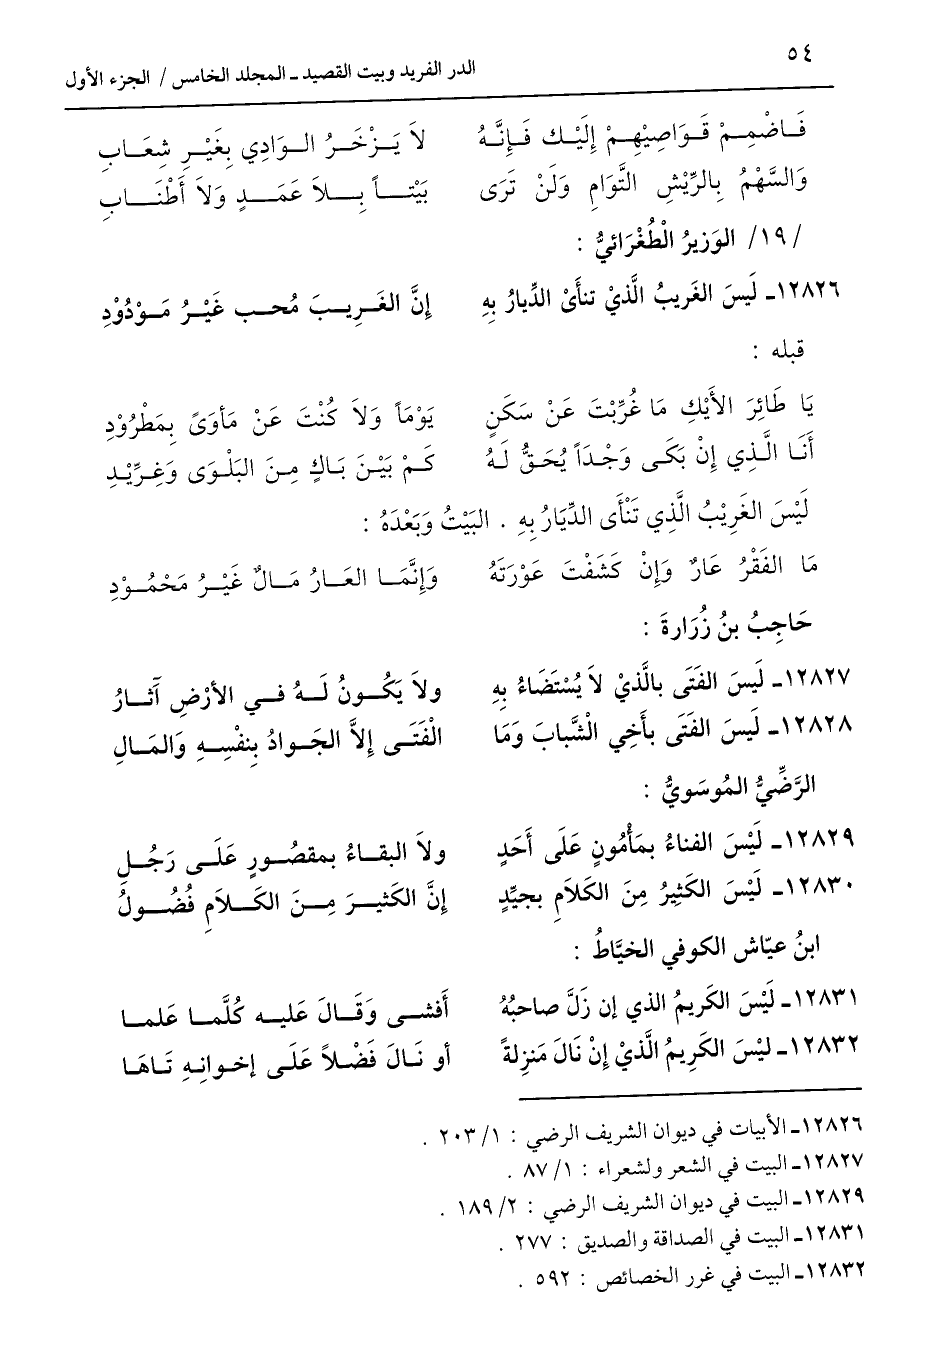 ٥٤
الدر الفريد وبيت القصيد ـ المجلد الخامس / الجزء الأول
فَـاضْمِـمْ قَـوَاصِيْهِـمْ إِلَيْـك فَـإِنَّـهُ لاَ يَـزْخَـرُ الـوَادِي بِغَيْـرِ شِعَـابِ
وَالسَّهْمُ بِالرِّيْشِ التَّوَامِ وَلَنْ تَرَى بَيْتـاً بِـلاَ عَمَـدٍ وَلاَ أَطْنَـابِ
/١٩/ الوَزيرُ الْطُغْرَائيُّ :
١٢٨٢٦ـ لَيسَ الغَريبُ الَّذيْ تنأىْ الدِّيارُ بِهِ إنَّ الغَـريـبَ مُحـب غَيْـرُ مَـوْدُوْدِ
قبله :
يَا طَائِرَ الأَيْكِ مَا غُرِّبْتَ عَنْ سَكَنٍ يَوْمَاً وَلاَ كُنْتَ عَنْ مَأوَىً بِمَطْرُوْدِ
أَنَا الَّـذِي إِنْ بَكَـى وَجْـدَاً يُحَـقُّ لَـهُ كَـمْ بَيْـنَ بَـاكٍ مِـنَ البَلْـوَى وَغِـرِّيْـدِ
لَيْسَ الغَرِيْبُ الَّذِي تَنْأَى الدِّيَارُ بِهِ . البَيْتُ وَبَعْدَهُ :
مَا الفَقْرُ عَارٌ وَإِنْ كَشَفْتَ عَوْرَتَهُ وَإِنَّمَـا العَـارُ مَـالٌ غَيْـرُ مَحْمُـوْدِ
حَاجِبُ بنُ زُرَارةَ :
١٢٨٢٧ـ لَيسَ الفَتَى بالَّذيْ لاَ يُسْتَضَاءُ بِهِ ولاَ يَكُـونُ لَـهُ فـي الأرْضِ آثـارُ
١٢٨٢٨ـ لَيسَ الفَتَى بأَخِي الْشَّبابَ وَمَا الْفَتَـى إلاَّ الجَـوادُ بِنفْسِـهِ وَالمَـالِ
الرَّضِّيُّ المُوسَويُّ :
١٢٨٢٩ـ لَيْسَ الفناءُ بمَأْمُونٍ عَلَى أَحَدٍ ولاَ البقـاءُ بمقصُـورٍ عَلَـى رَجُـلِ
١٢٨٣٠ـ لَيْسَ الكَثِيرُ مِنَ الكَلاَمِ بجيِّدٍ إنَّ الكَثيـرَ مِـنَ الكَـلاَمِ فُضُـولُ
ابنُ عيّاش الكوفي الخيَّاطُ :
١٢٨٣١ـ لَيْسَ الكَريمُ الذي إن زَلَّ صاحبُهُ أَفشـى وَقَـالَ عَليـه كُلَّمـا عَلمـا
١٢٨٣٢ـ ليْسَ الكَرِيمُ الَّذيْ إِنْ نَالَ مَنزِلةً أو نَـالَ فَضْـلاً عَلَـى إخـوانـهِ تَـاهَـا
١٢٨٢٦ـ الأبيات في ديوان الشريف الرضي : ٢٠٣/١ .
١٢٨٢٧ـ البيت في الشعر ولشعراء : ٨٧/١ .
١٢٨٢٩ـ البيت في ديوان الشريف الرضي : ١٨٩/٢ .
١٢٨٣١ـ البيت في الصداقة والصديق : ٢٧٧ .
١٢٨٣٢ـ البيت في غرر الخصائص : ٥٩٢ .